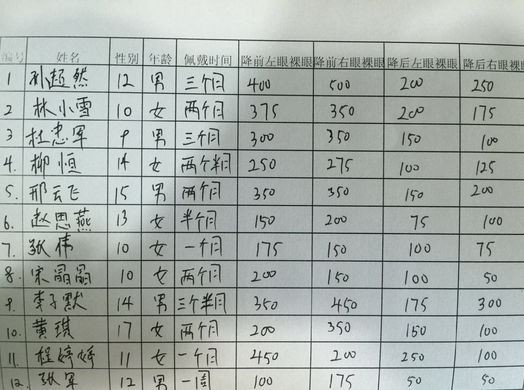 编号 姓名 性别 年龄 佩戴时间 降前左眼裸眼 降前右眼裸眼 降后左眼裸眼 降后右眼裸眼
1 孙超然 12 男 三个月 400 500 200 250
2 林小雪 10 女 两个月 375 350 200 175
3 杜忠军 9 男 三个月 300 350 150 100
4. 柳恒 14 女 两个半月 250 275 100 125
5. 邢云飞 15 男 两个月 350 350 150 200
6. 赵思燕 13 女 半个月 150 200 75 100
7. 张伟 10 女 一个月 175 150 100 75
8. 宋晶晶 10 女 两个月 200 150 100 50
9. 李子默 14 男 三个半月 350 450 175 300
10. 黄琪 17 女 两个月 200 350 150 100
11. 程婷婷 11 女 一个月 450 200 250 100
12. 张军 12 男 一周 100 175 50 50